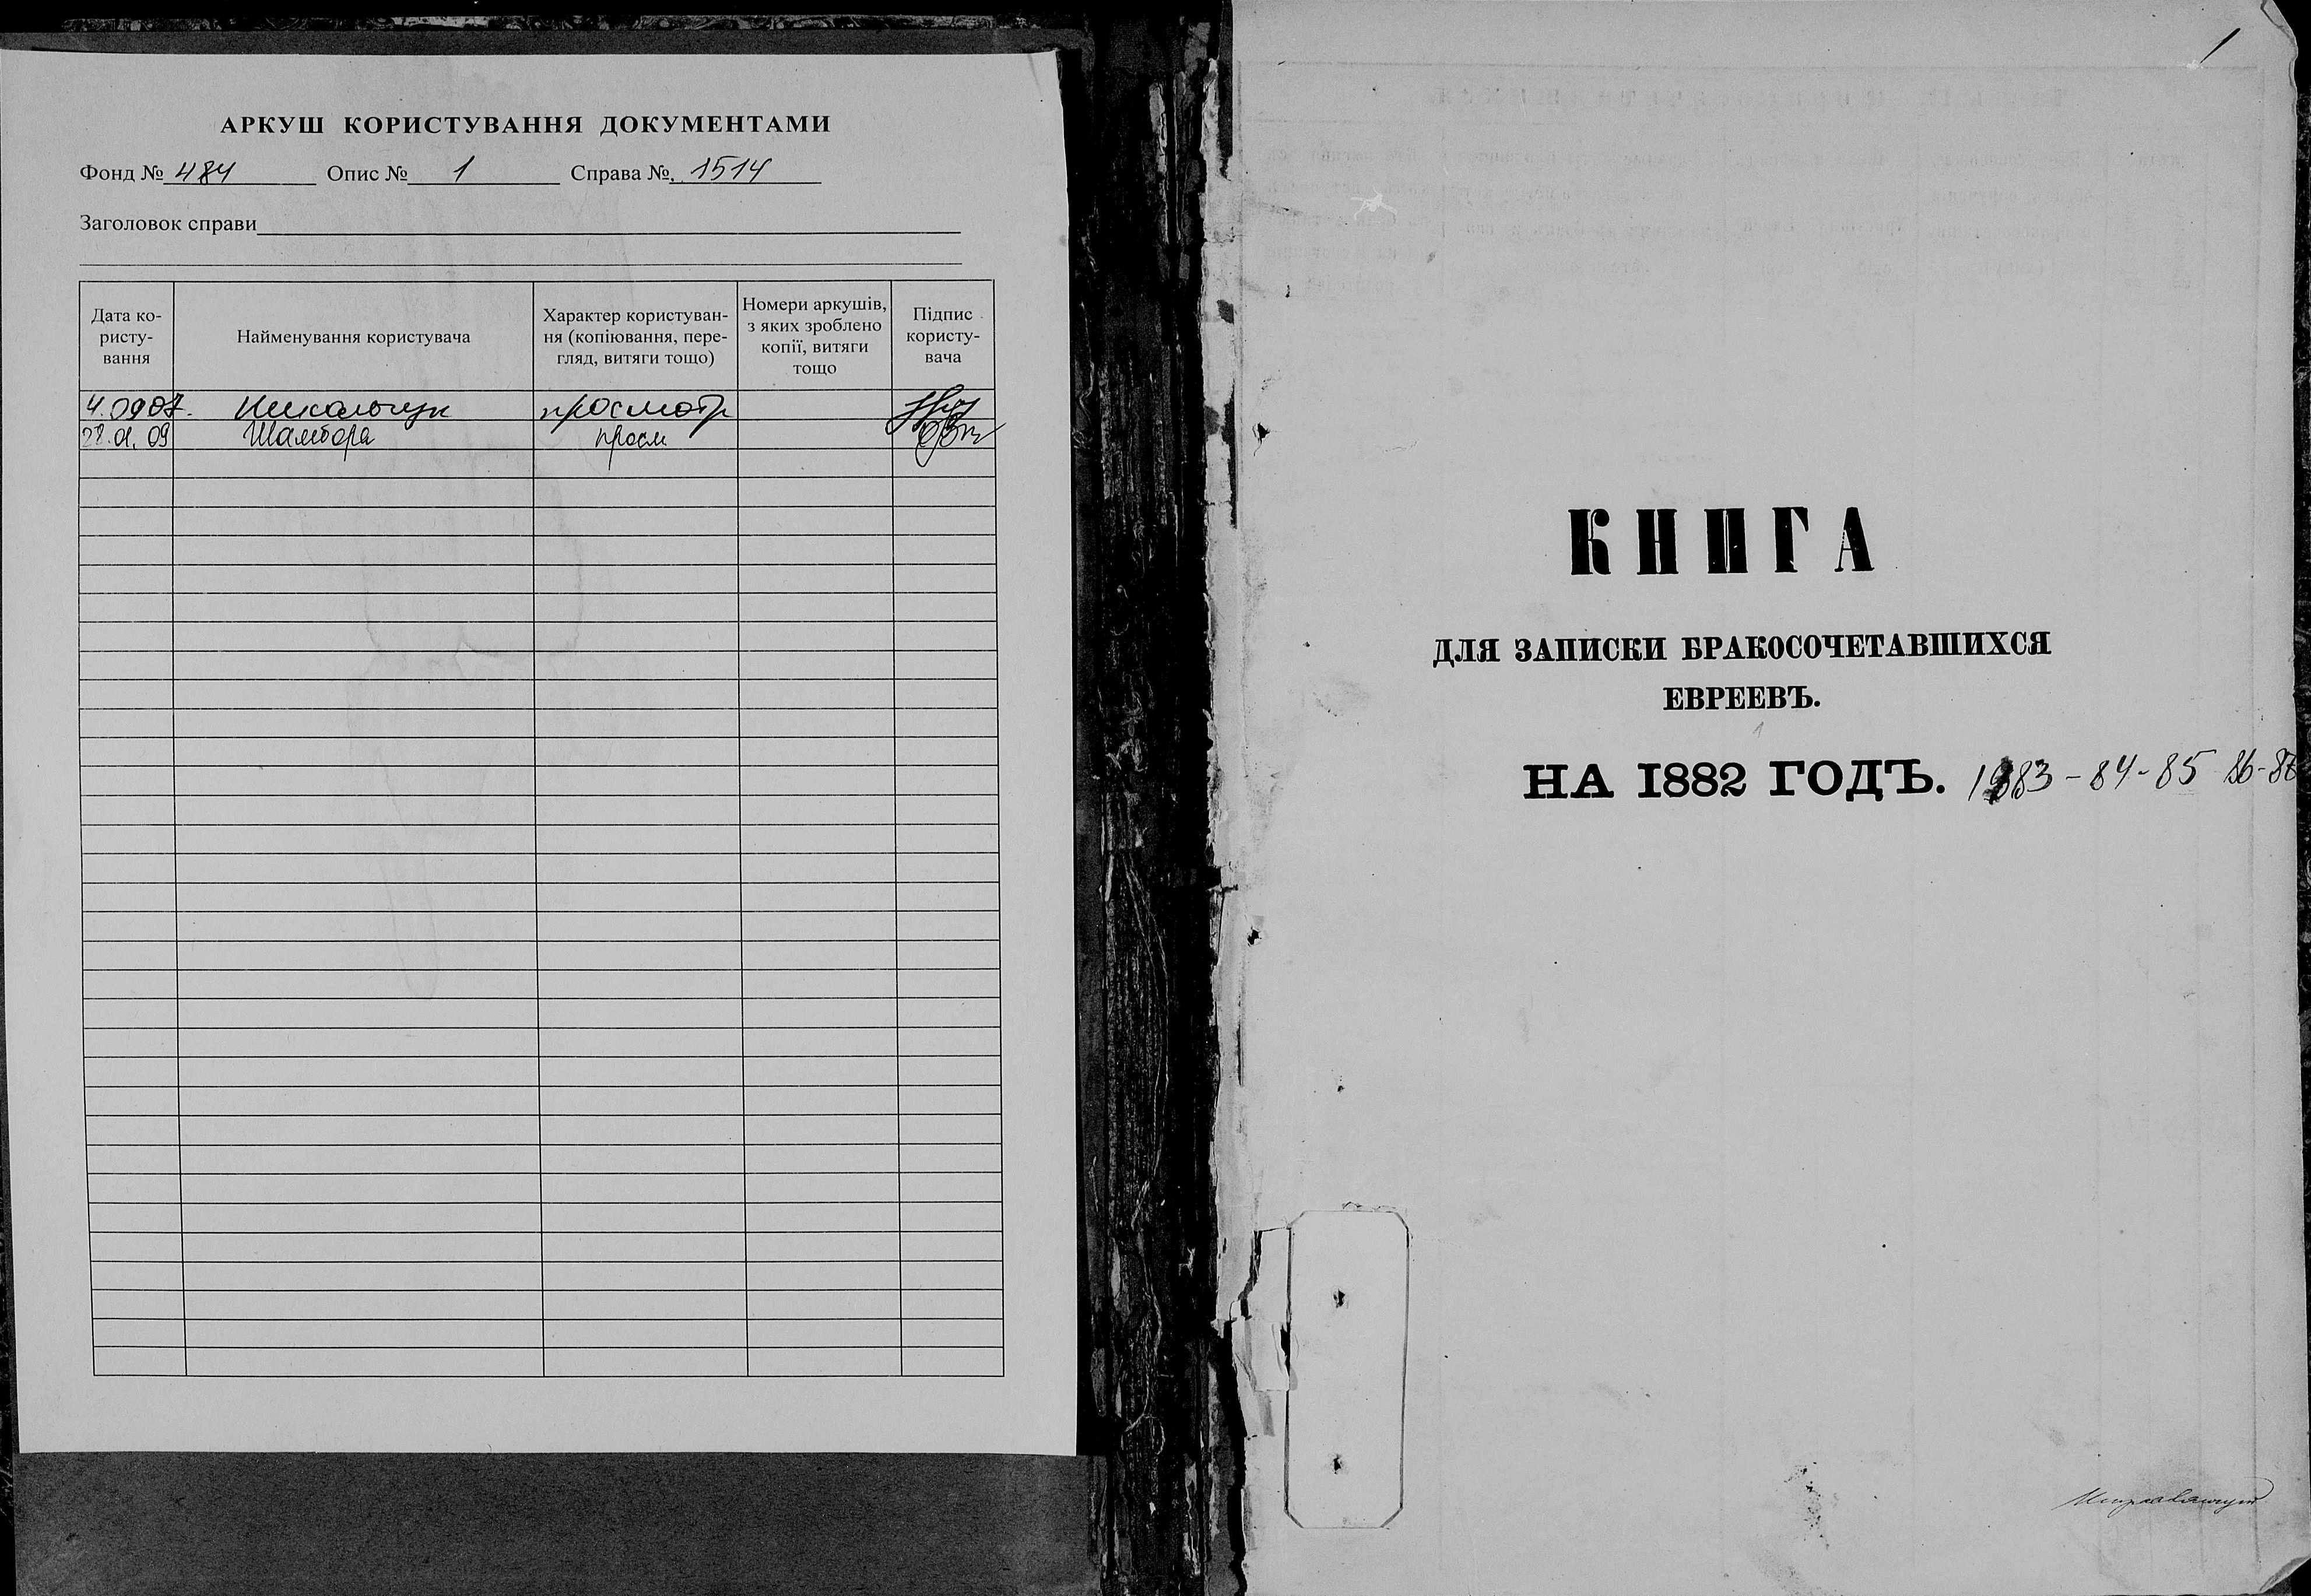 АРКУШ КОРИСТУВАННЯ ДОКУМЕНТАМИ
Фонд № 484 Опис № 1 Справа № 1514
Заголовок справи
Дата ко-
ристу-
вання
Найменування користувача
Характер користуван-
ня (копіювання, пере-
гляд, витяги тощо)
Номери аркушів,
з яких зроблено
копії, витяги
тощо
Підпис
користу-
вача
4.09 07. просмотр
28.01.09 Шамбора просм
1
КНИГА
ДЛЯ ЗАПИСКИ БРАКОСОЧЕТАВШИХСЯ
ЕВРЕЕВЪ.
НА 1882 ГОДЪ. 1883-84-85 86-87